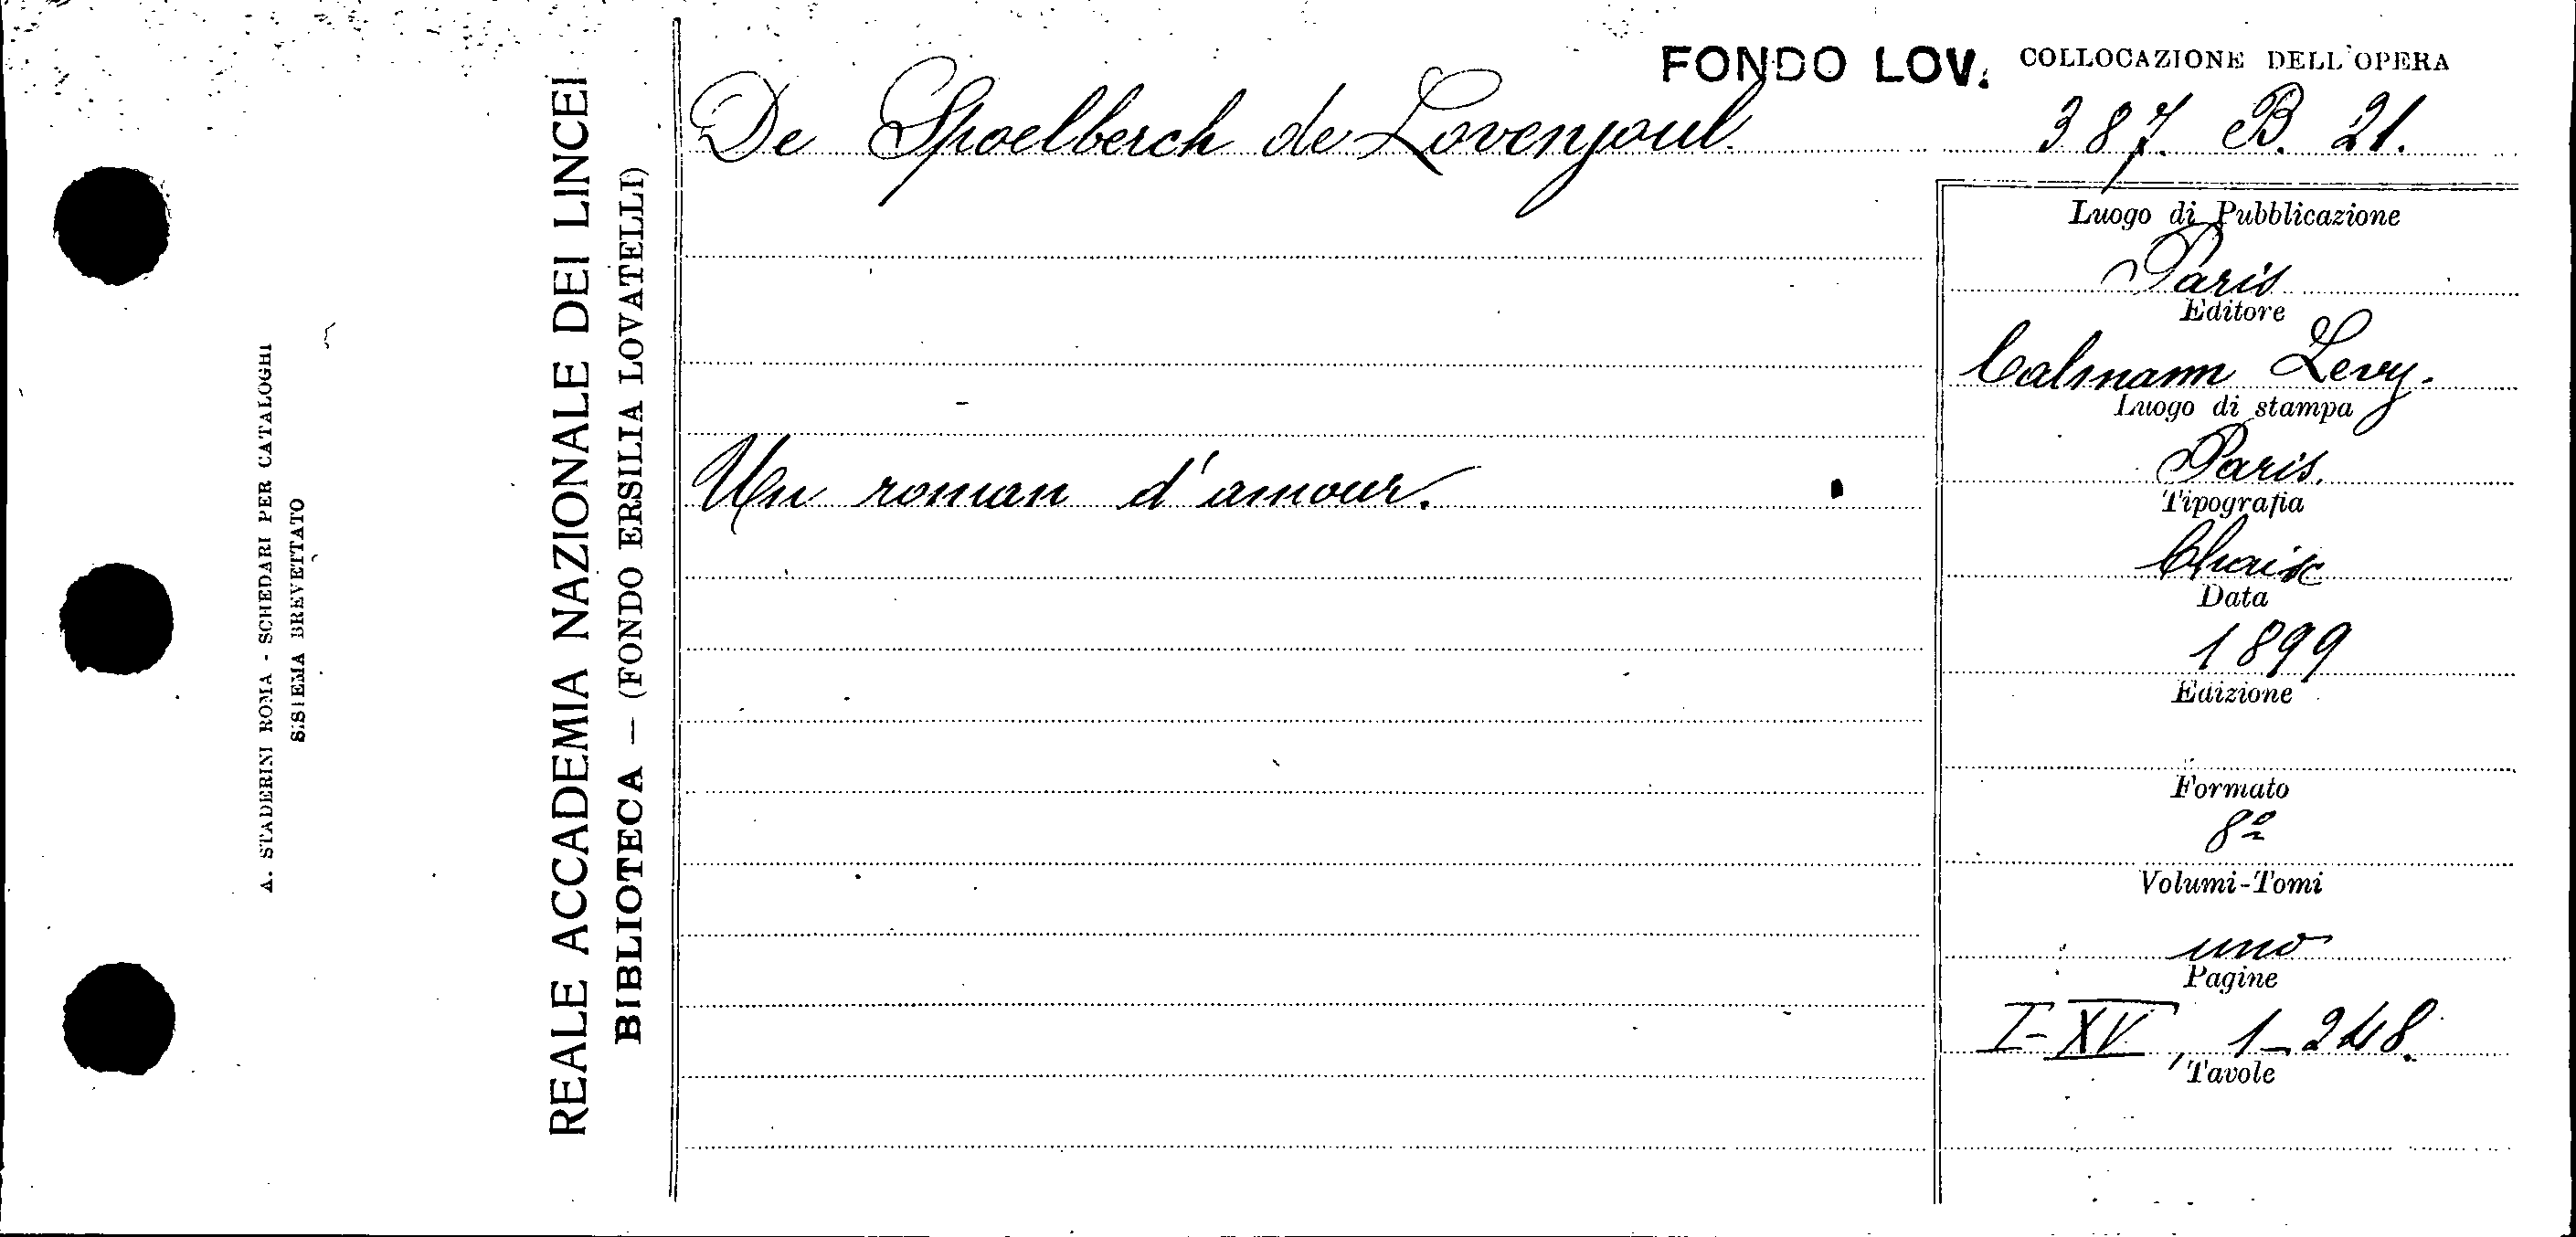 A. STADERINI ROMA - SCHEDARI PER CATALOGHI
SISTEMA BREVETTATO
REALE ACCADEMIA NAZIONALE DEI LINCEI
BIBLIOTECA — (FONDO ERSILIA LOVATELLI)
FONDO LOV.
De Spoelberch de Lovenjoul.
Un roman d'amour.
COLLOCAZIONE DELL'OPERA
387. B. 21.
Luogo di Pubblicazione
Paris
Editore
Calmann Levy.
Luogo di stampa
Paris.
Tipografia
Chaix
Data
1899
Edizione
Formato
8º
Volumi-Tomi
uno
Pagine
I-XV, 1-248.
Tavole